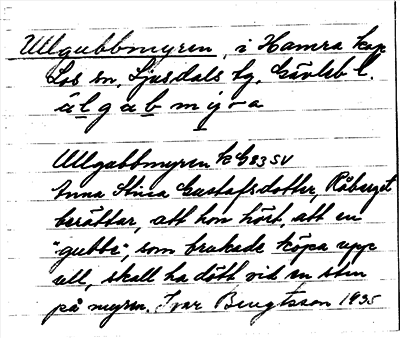 Ullgubbmyren, i Hamra kap
Los sn, Ljusdals tg, Gävleb l.
ùlgabmỳra
Ullgubbmyren k G83 SV
Anna Stina Gustafsdotter, Råberget
berättar, att hon hört, att en
"gubbe", som brukade köpa upp
ull, skall ha dött vid en sten
på myren. Ivar Bengtsson 1935